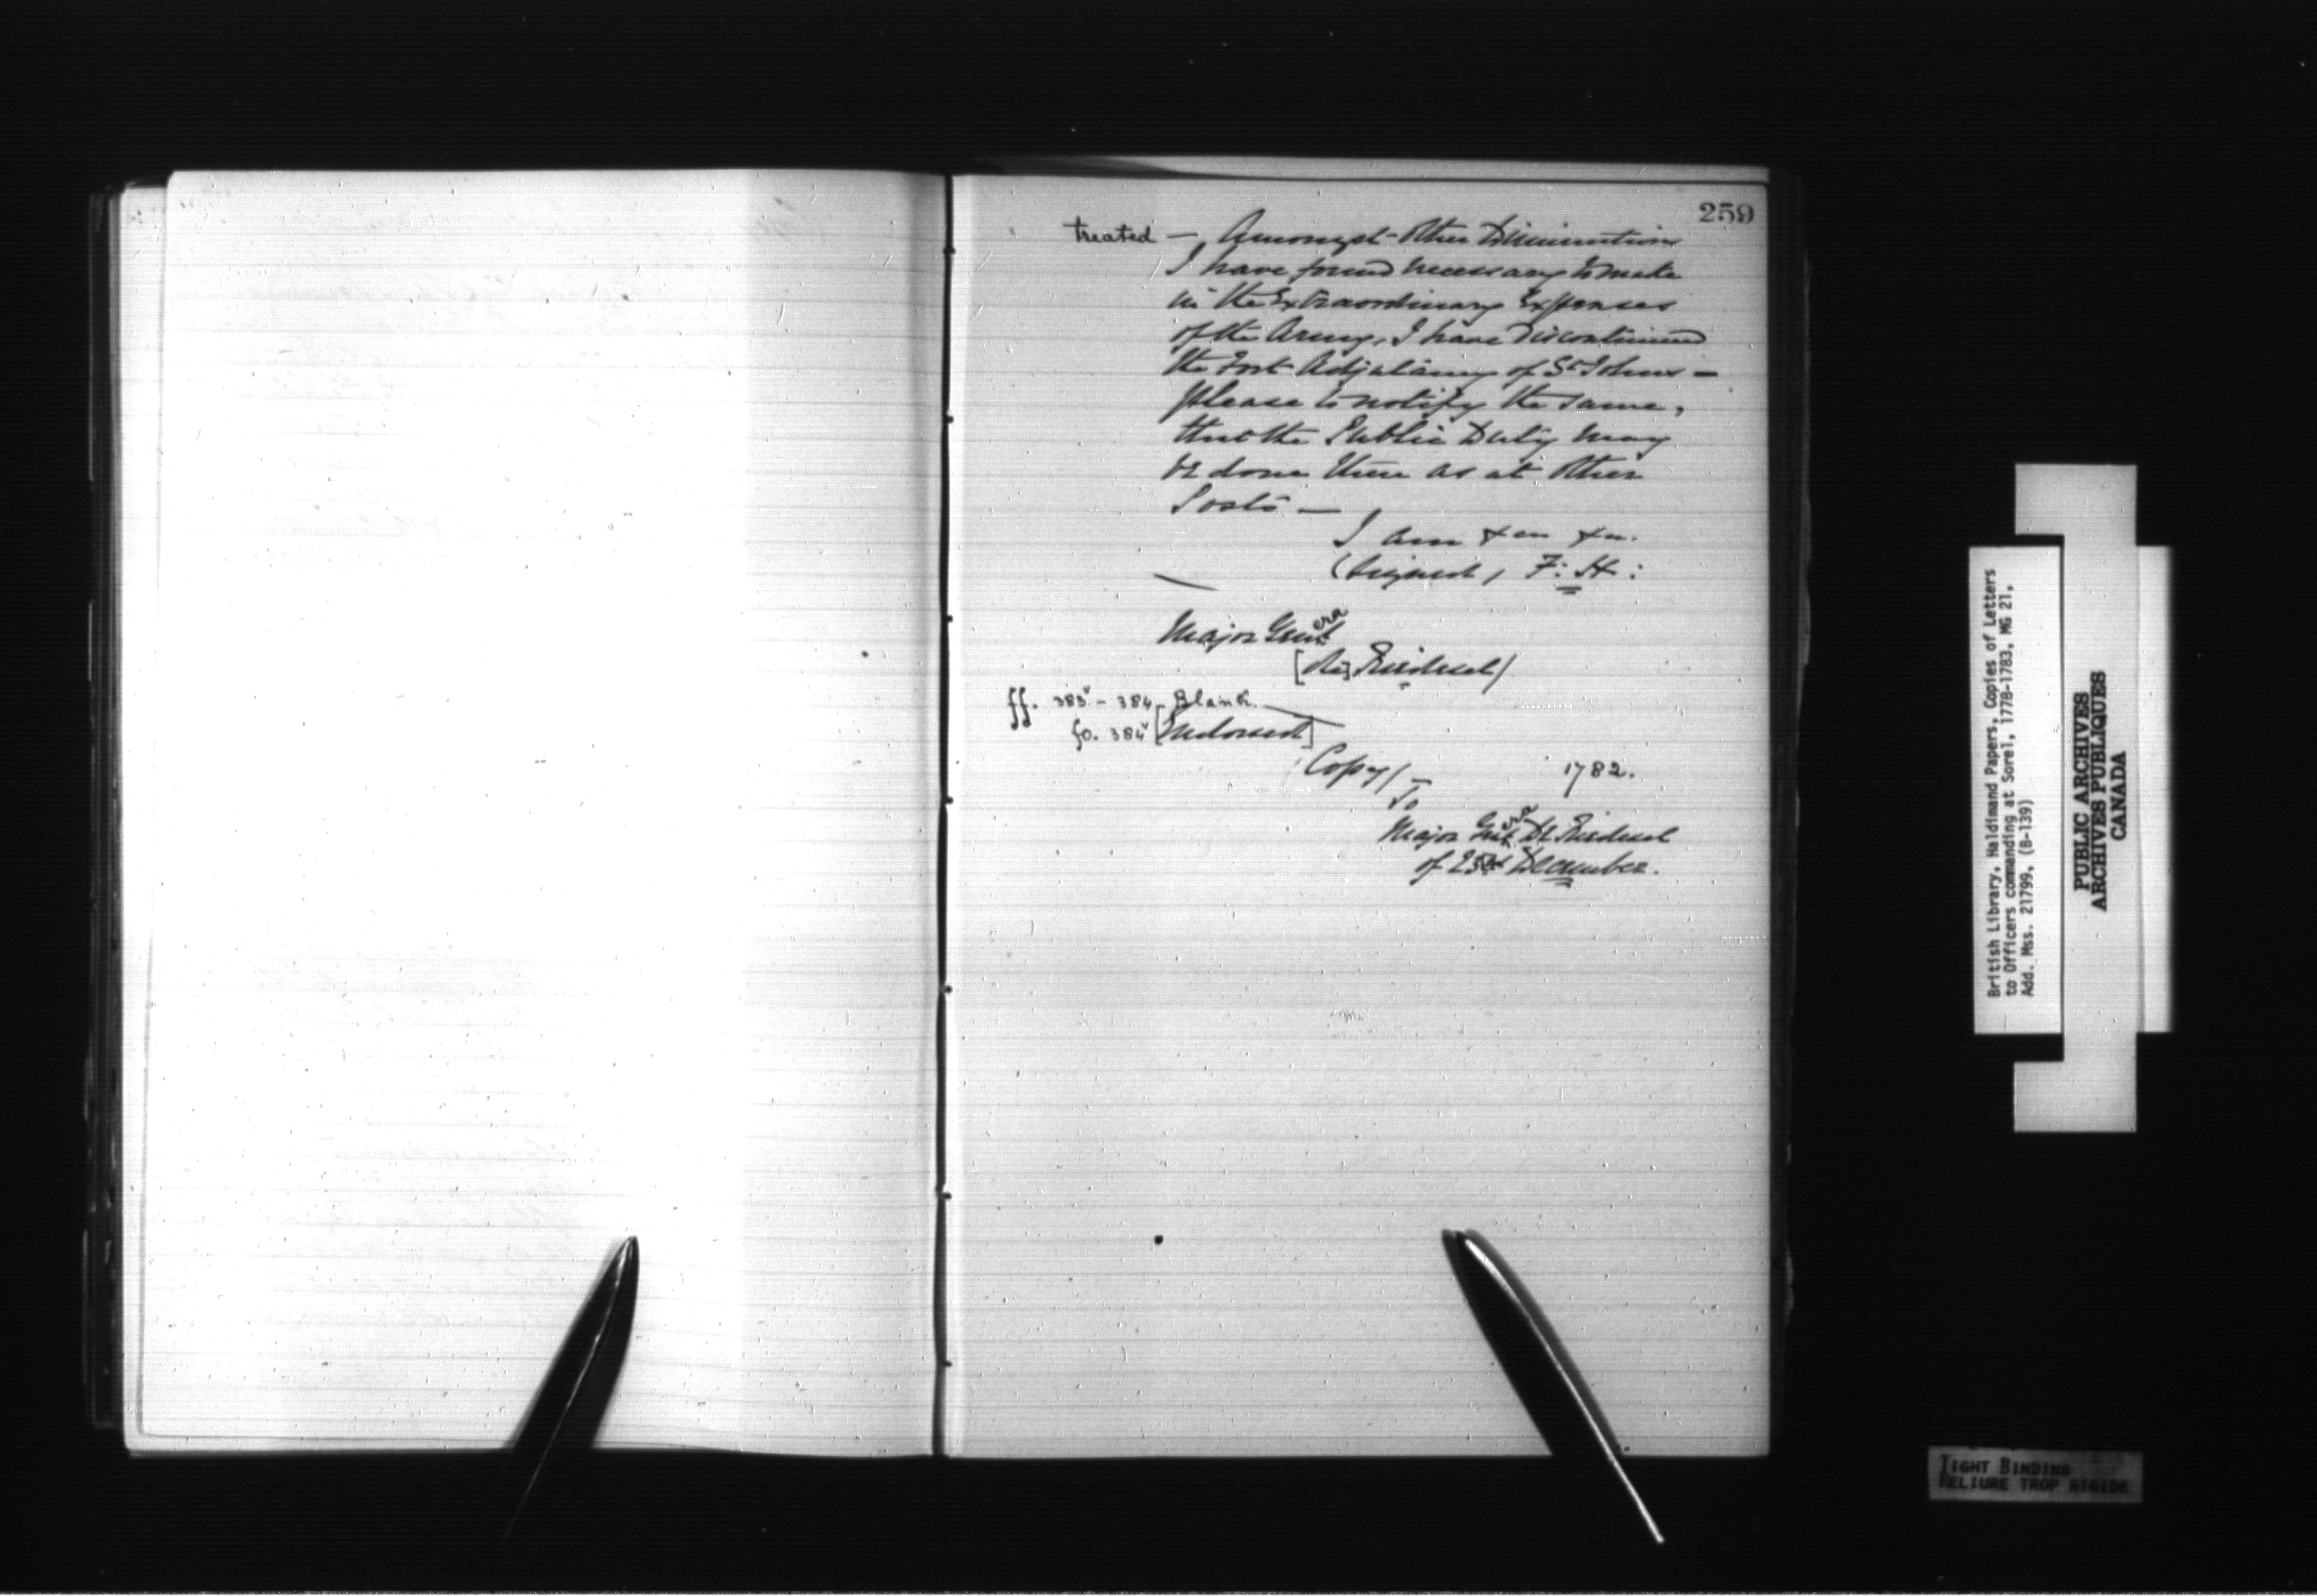 259
treated — Amongst other Diminutions
I have found necessary to make
in the Extraordinary Expenses
of the Army, I have discontinued
the Fort Adjutancy of St Johns —
please to notify the same,
that the Public Duty may
be done there as at other
Posts —
I am &ca &ca.
(Signed) F: H:
Major General
[De] Riedesel)
ff. 383v – 384 Blank.
fo. 384v [Endorsed]
Copy/
1782.
To
Major General De Riedesel
of December.
British Library, Haldimand Papers, Copies of Letters
to Officers commanding at Sorel, 1778-1783, MG 21,
Add. Mss. 21799, (B-139)
PUBLIC ARCHIVES
ARCHIVES PUBLIQUES
CANADA
TIGHT BINDING
RELIURE TROP RIGIDE